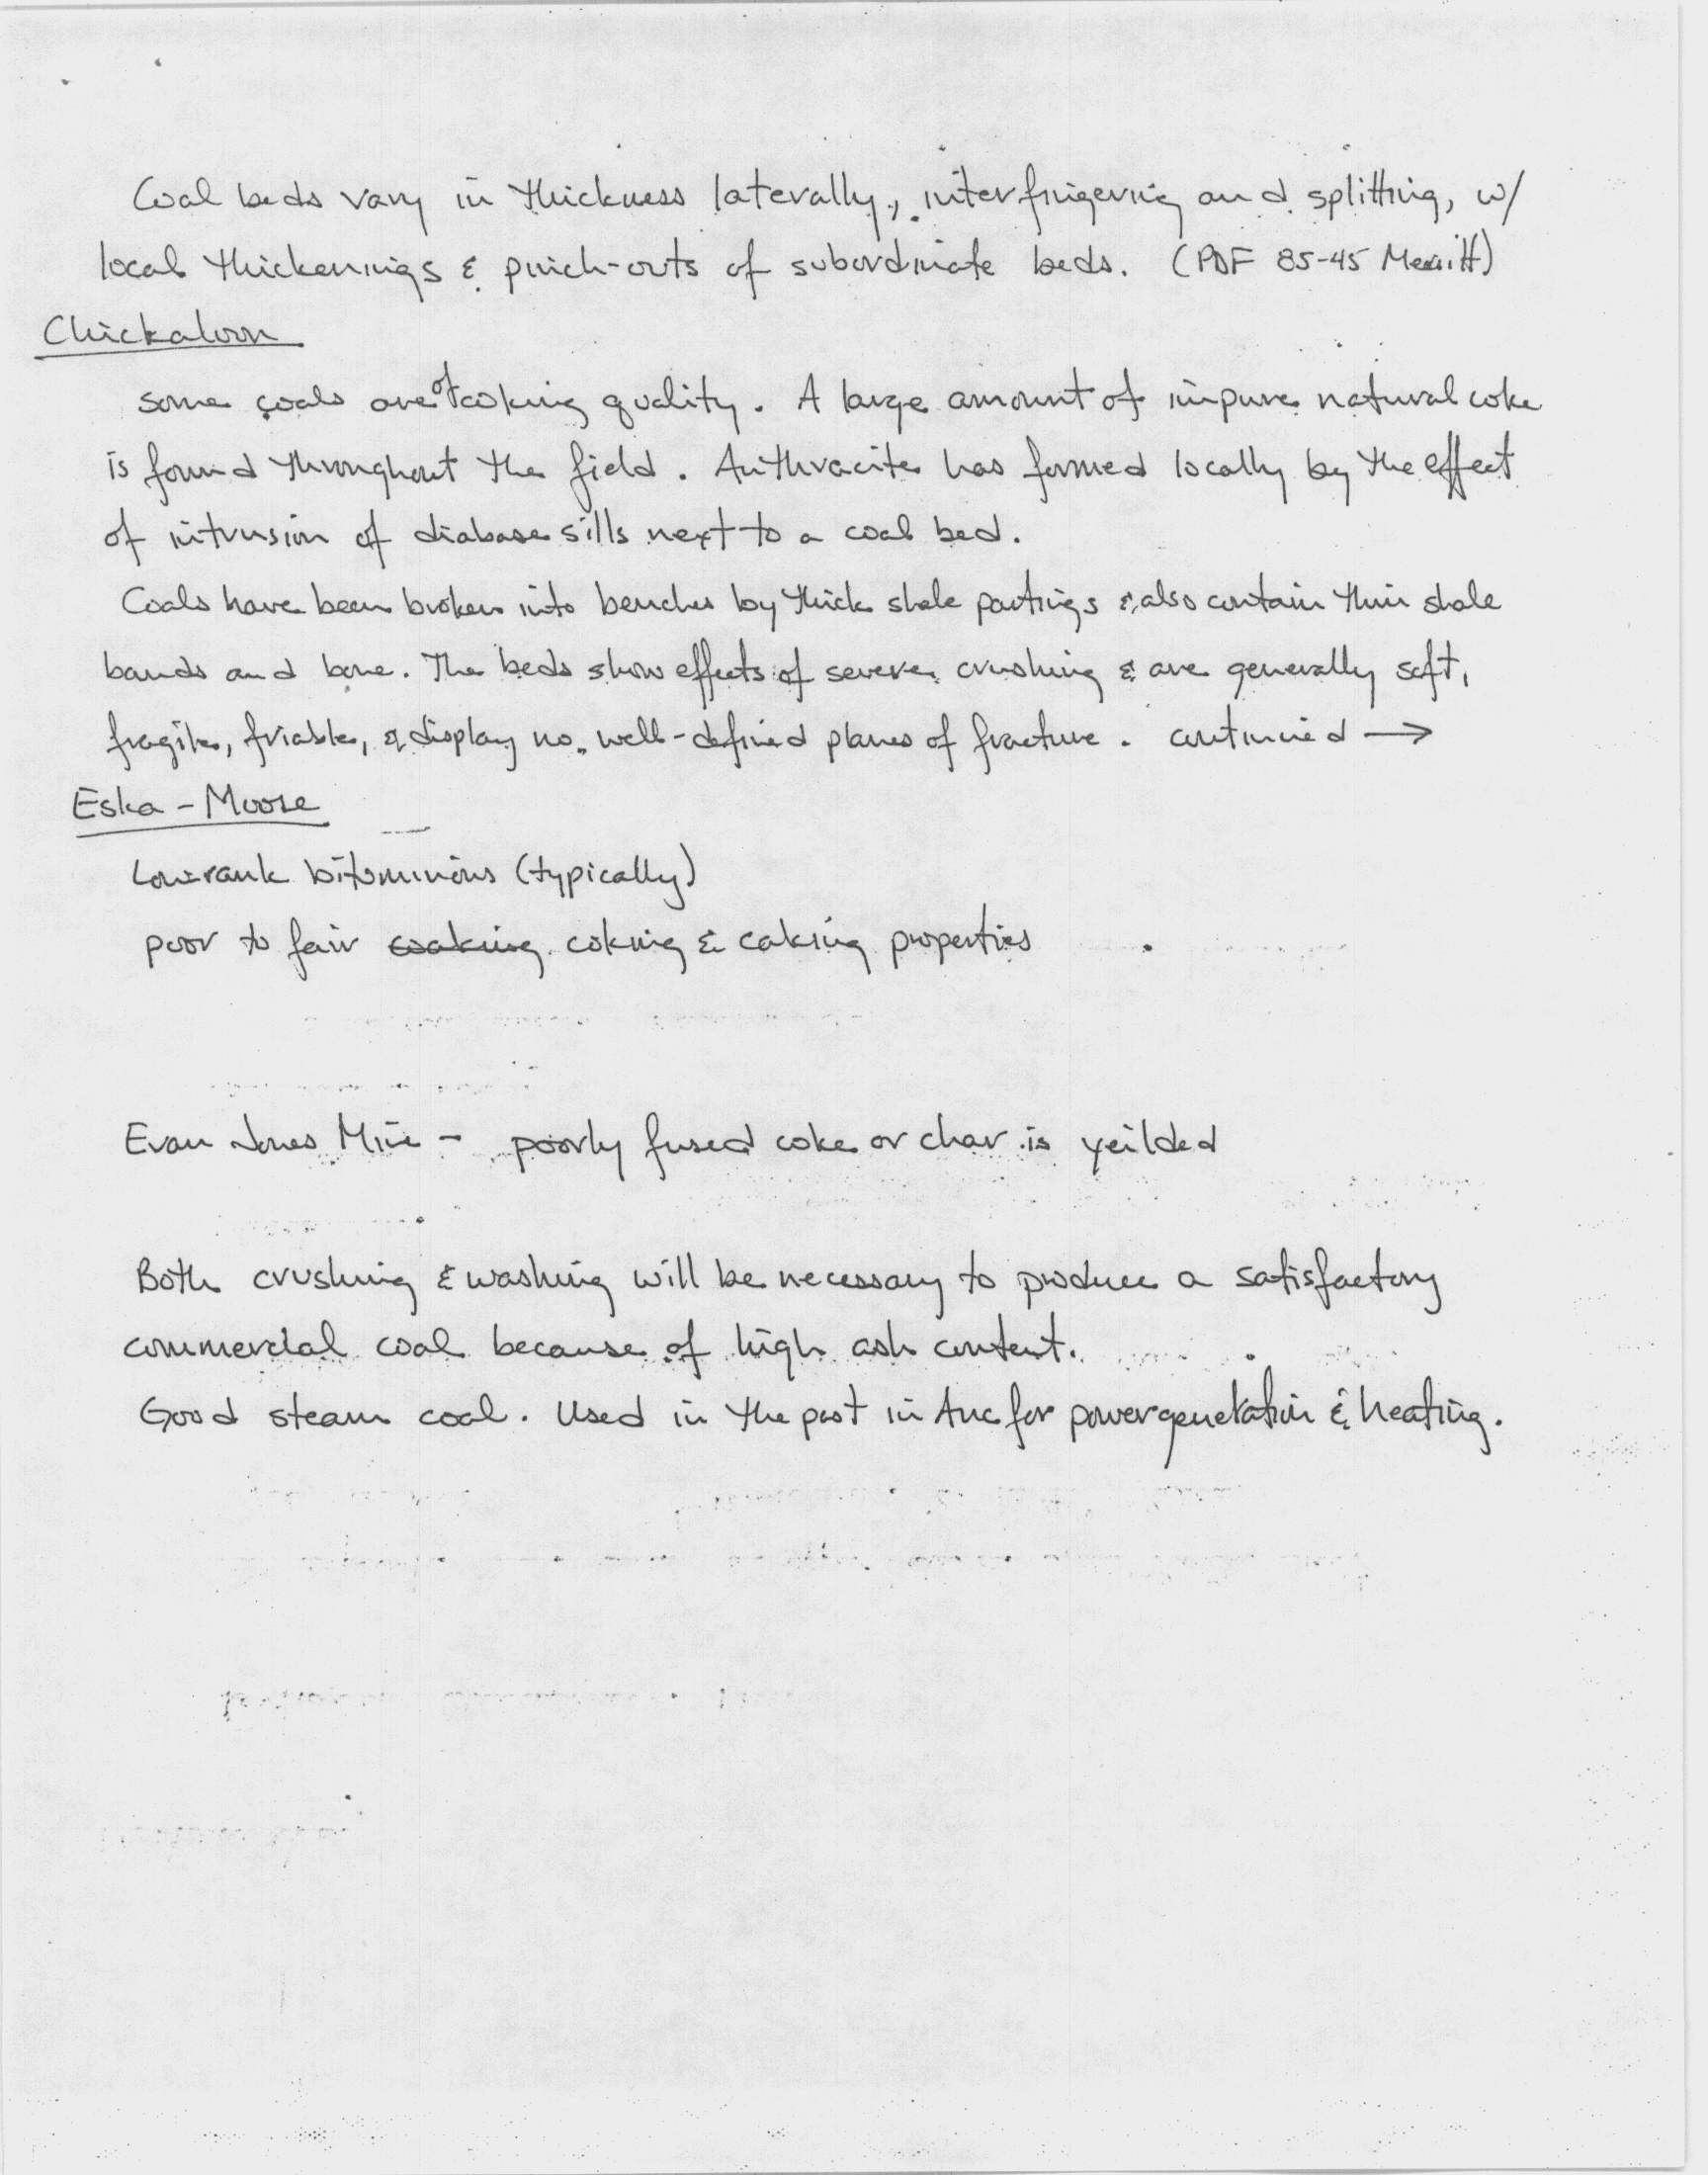 Coal beds vary in thickness laterally, interfingering and splitting, w/
local thickenings & pinch-outs of subordinate beds. (PDF 85-45 Merritt)
Chickaloon
some coals are of coking quality. A large amount of impure natural coke
is found throughout the field. Anthracite has formed locally by the effect
of intrusion of diabase sills next to a coal bed.
Coals have been broken into benches by thick shale partings & also contain thin shale
bands and bone. The beds show effects of severe crushing & are generally soft,
fragile, friable, & display no well-defined planes of fracture. continued →
Eska - Moose
Low-rank bituminous (typically)
poor to fair coaking coking & caking properties
Evan Jones Mine - poorly fused coke or char is yeilded
Both crushing & washing will be necessary to produce a satisfactory
commercial coal because of high ash content.
Good steam coal. Used in the past in Anc for power generation & heating.